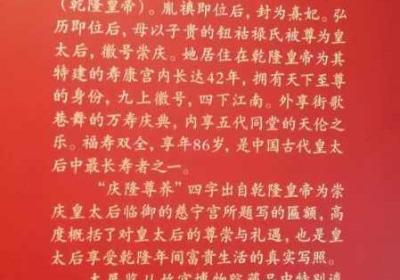 (乾隆皇帝)。胤禛即位后,封为熹妃。弘
历即位后,母以子贵的钮祜禄氏被尊为皇
太后,徽号崇庆。她居住在乾隆皇帝为其
特建的寿康宫内长达42年,拥有天下至尊
的身份,九上徽号,四下江南。外享街歌
巷舞的万寿庆典,内享五代同堂的天伦之
乐。福寿双全,享年86岁,是中国古代皇太
后中最长寿者之一。
“庆隆尊养”四字出自乾隆皇帝为崇
庆皇太后临御的慈宁宫所题写的匾额,高
度概括了对皇太后的尊崇与礼遇,也是皇
太后享受乾隆年间富贵生活的真实写照。
本展览从故宫博物院藏品中特别选